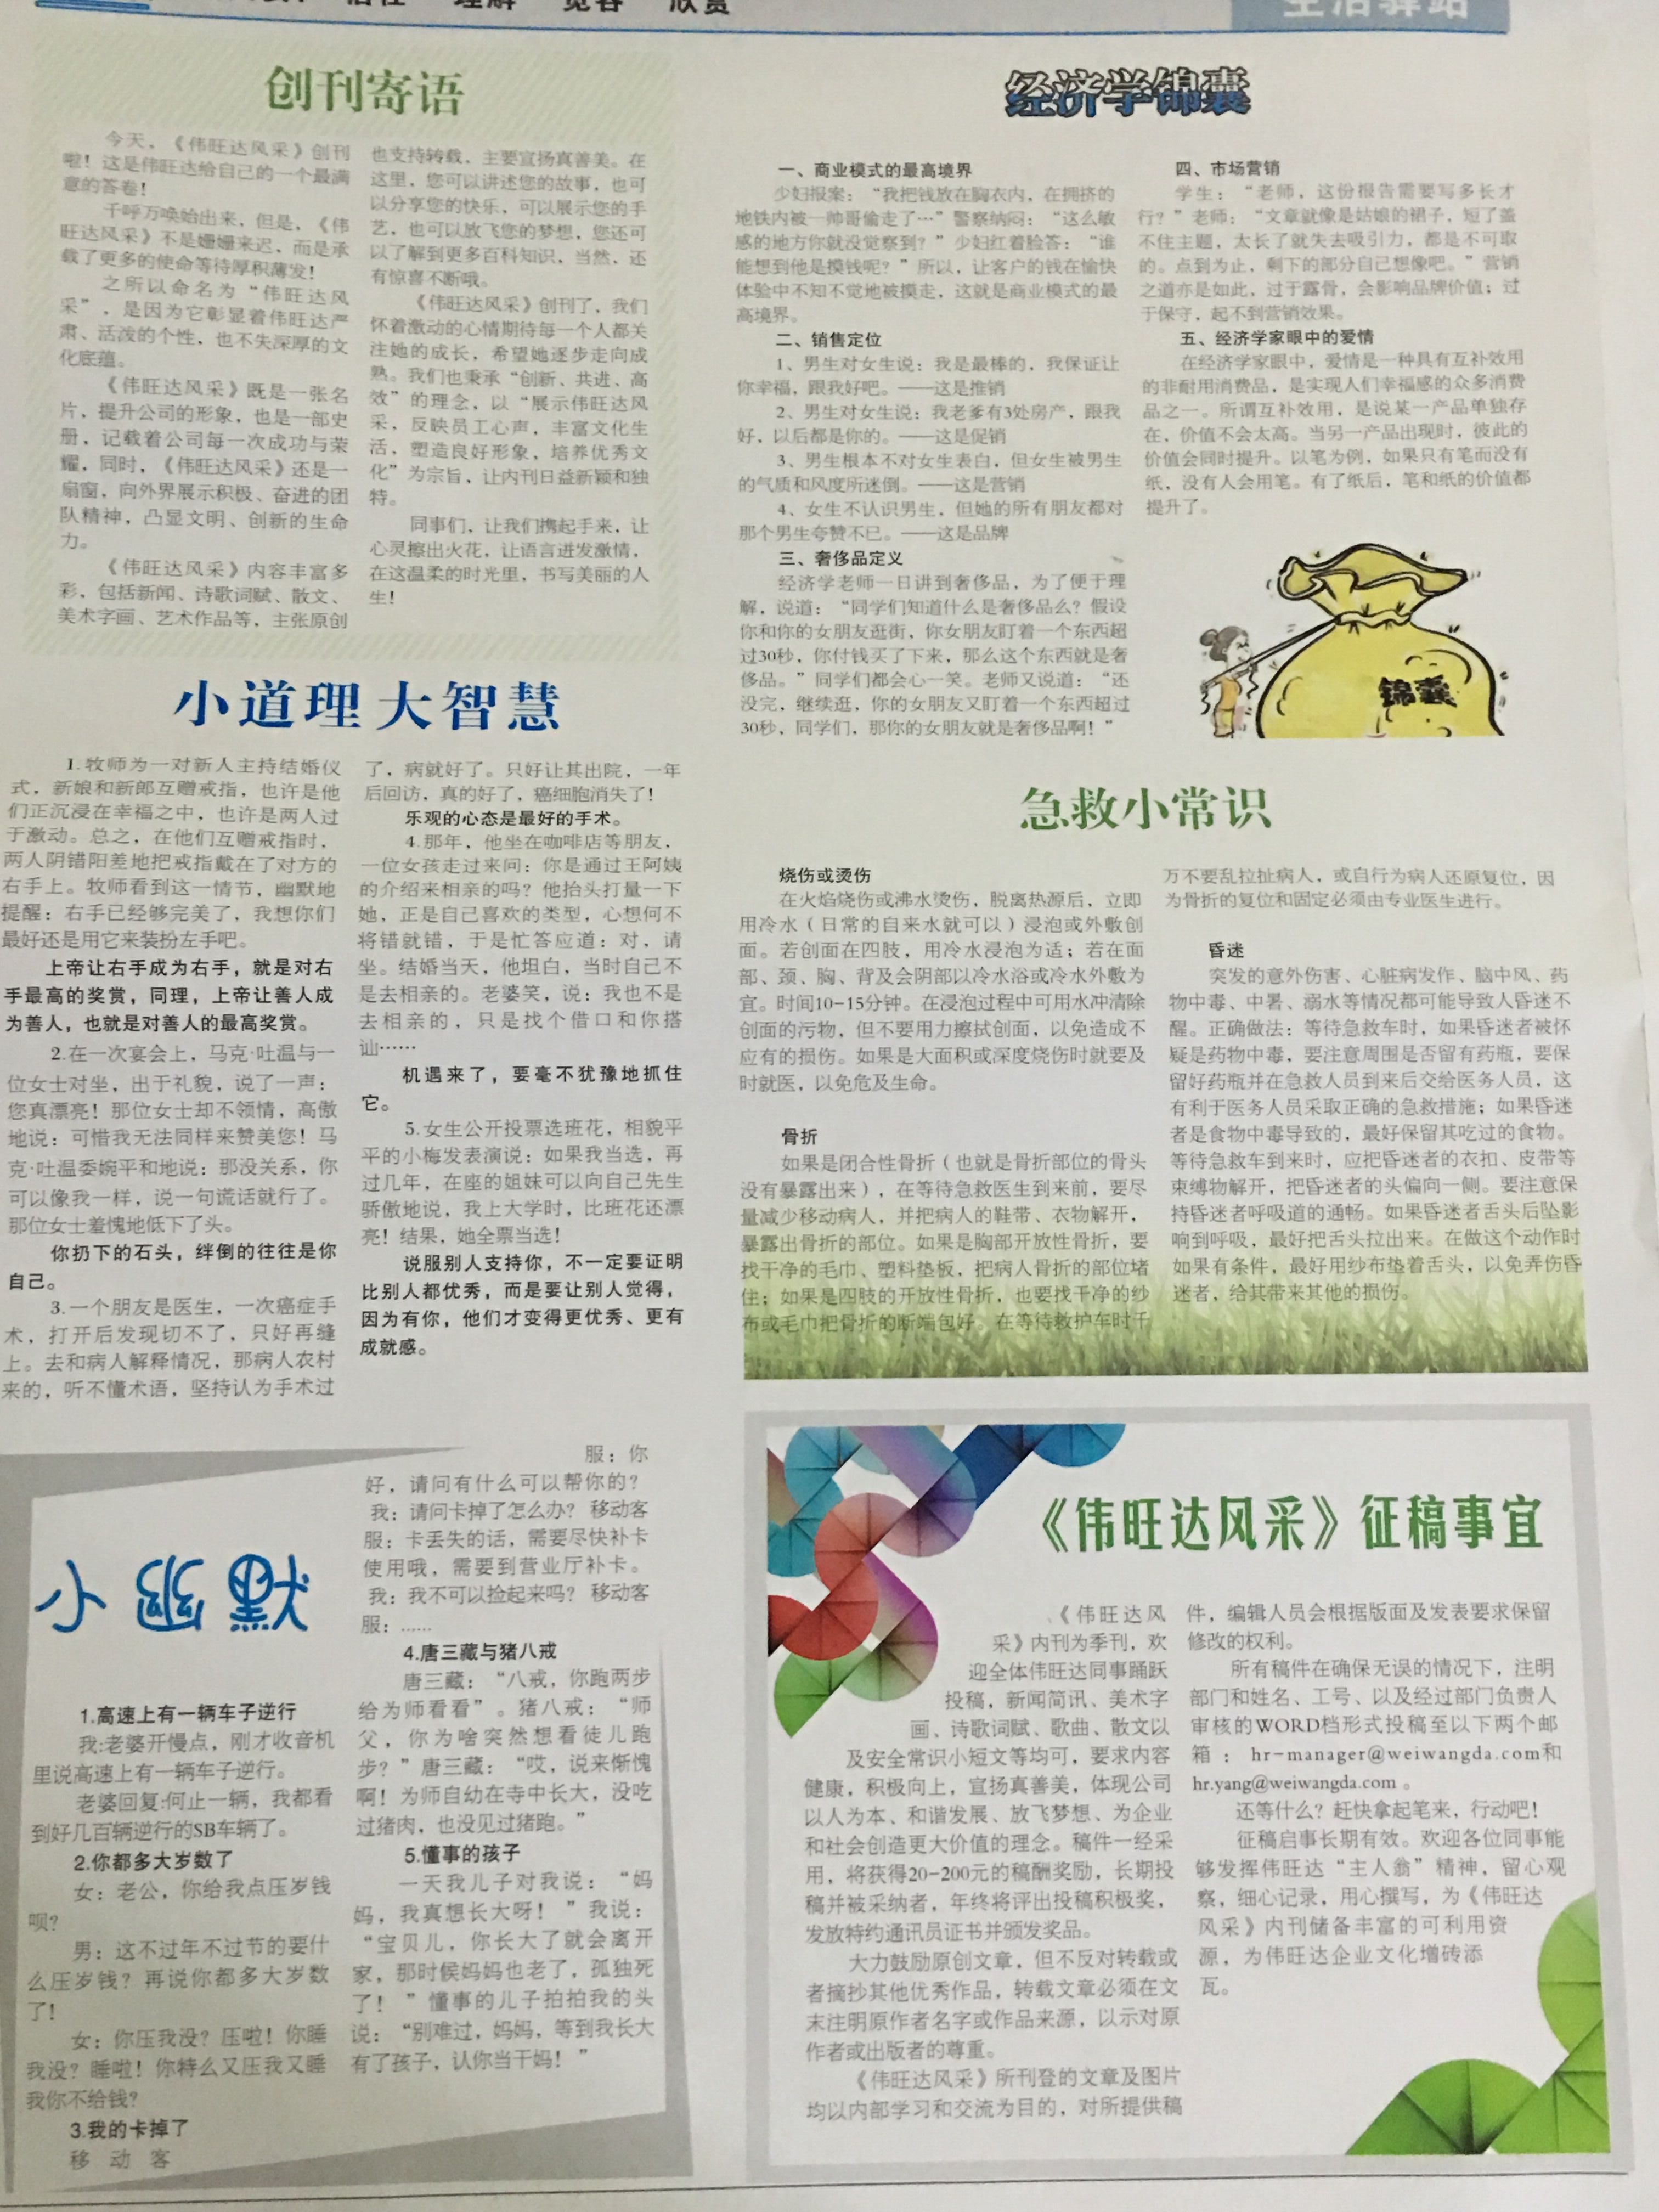 信任 理解 宽容 欣赏
生活驿站
创刊寄语
今天，《伟旺达风采》创刊
啦！这是伟旺达给自己的一个最满
意的答卷！
千呼万唤始出来，但是，《伟
旺达风采》不是姗姗来迟，而是承
载了更多的使命等待厚积薄发！
之所以命名为“伟旺达风
采”，是因为它彰显着伟旺达严
肃、活泼的个性，也不失深厚的文
化底蕴。
《伟旺达风采》既是一张名
片，提升公司的形象，也是一部史
册，记载着公司每一次成功与荣
耀，同时，《伟旺达风采》还是一
扇窗，向外界展示积极、奋进的团
队精神，凸显文明、创新的生命
力。
《伟旺达风采》内容丰富多
彩，包括新闻、诗歌词赋、散文、
美术字画、艺术作品等，主张原创
也支持转载，主要宣扬真善美。在
这里，您可以讲述您的故事，也可
以分享您的快乐，可以展示您的手
艺，也可以放飞您的梦想，您还可
以了解到更多百科知识，当然，还
有惊喜不断哦。
《伟旺达风采》创刊了，我们
怀着激动的心情期待每一个人都关
注她的成长，希望她逐步走向成
熟。我们也秉承“创新、共进、高
效”的理念，以“展示伟旺达风
采，反映员工心声，丰富文化生
活，塑造良好形象，培养优秀文
化”为宗旨，让内刊日益新颖和独
特。
同事们，让我们携起手来，让
心灵擦出火花，让语言迸发激情，
在这温柔的时光里，书写美丽的人
生！
小道理大智慧
1.牧师为一对新人主持结婚仪
式，新娘和新郎互赠戒指，也许是他
们正沉浸在幸福之中，也许是两人过
于激动。总之，在他们互赠戒指时，
两人阴错阳差地把戒指戴在了对方的
右手上。牧师看到这一情节，幽默地
提醒：右手已经够完美了，我想你们
最好还是用它来装扮左手吧。
上帝让右手成为右手，就是对右
手最高的奖赏，同理，上帝让善人成
为善人，也就是对善人的最高奖赏。
2.在一次宴会上，马克·吐温与一
位女士对坐，出于礼貌，说了一声：
您真漂亮！那位女士却不领情，高傲
地说：可惜我无法同样来赞美您！马
克·吐温委婉平和地说：那没关系，你
可以像我一样，说一句谎话就行了。
那位女士羞愧地低下了头。
你扔下的石头，绊倒的往往是你
自己。
3.一个朋友是医生，一次癌症手
术，打开后发现切不了，只好再缝
上。去和病人解释情况，那病人农村
来的，听不懂术语，坚持认为手术过
了，病就好了。只好让其出院，一年
后回访，真的好了，癌细胞消失了！
乐观的心态是最好的手术。
4.那年，他坐在咖啡店等朋友，
一位女孩走过来问：你是通过王阿姨
的介绍来相亲的吗？他抬头打量一下
她，正是自己喜欢的类型，心想何不
将错就错，于是忙答应道：对，请
坐。结婚当天，他坦白，当时自己不
是去相亲的。老婆笑，说：我也不是
去相亲的，只是找个借口和你搭
讪……
机遇来了，要毫不犹豫地抓住
它。
5.女生公开投票选班花，相貌平
平的小梅发表演说：如果我当选，再
过几年，在座的姐妹可以向自己先生
骄傲地说，我上大学时，比班花还漂
亮！结果，她全票当选！
说服别人支持你，不一定要证明
比别人都优秀，而是要让别人觉得，
因为有你，他们才变得更优秀、更有
成就感。
小幽默
1.高速上有一辆车子逆行
我:老婆开慢点，刚才收音机
里说高速上有一辆车子逆行。
老婆回复:何止一辆，我都看
到好几百辆逆行的SB车辆了。
2.你都多大岁数了
女：老公，你给我点压岁钱
呗？
男：这不过年不过节的要什
么压岁钱？再说你都多大岁数
了！
女：你压我没？压啦！你睡
我没？睡啦！你特么又压我又睡
我你不给钱？
3.我的卡掉了
移动客
服：你
好，请问有什么可以帮你的？
我：请问卡掉了怎么办？ 移动客
服：卡丢失的话，需要尽快补卡
使用哦，需要到营业厅补卡。
我：我不可以捡起来吗？ 移动客
服：……
4.唐三藏与猪八戒
唐三藏：“八戒，你跑两步
给为师看看”。猪八戒：“师
父，你为啥突然想看徒儿跑
步？”唐三藏：“哎，说来惭愧
啊！为师自幼在寺中长大，没吃
过猪肉，也没见过猪跑。”
5.懂事的孩子
一天我儿子对我说：“妈
妈，我真想长大呀！”我说：
“宝贝儿，你长大了就会离开
家，那时候妈妈也老了，孤独死
了！”懂事的儿子拍拍我的头
说：“别难过，妈妈，等到我长大
有了孩子，认你当干妈！”
经济学锦囊
一、商业模式的最高境界
少妇报案：“我把钱放在胸衣内，在拥挤的
地铁内被一帅哥偷走了…”警察纳闷：“这么敏
感的地方你就没觉察到？”少妇红着脸答：“谁
能想到他是摸钱呢？”所以，让客户的钱在愉快
体验中不知不觉地被摸走，这就是商业模式的最
高境界。
二、销售定位
1、男生对女生说：我是最棒的，我保证让
你幸福，跟我好吧。——这是推销
2、男生对女生说：我老爹有3处房产，跟我
好，以后都是你的。——这是促销
3、男生根本不对女生表白，但女生被男生
的气质和风度所迷倒。——这是营销
4、女生不认识男生，但她的所有朋友都对
那个男生夸赞不已。——这是品牌
三、奢侈品定义
经济学老师一日讲到奢侈品，为了便于理
解，说道：“同学们知道什么是奢侈品么？假设
你和你的女朋友逛街，你女朋友盯着一个东西超
过30秒，你付钱买了下来，那么这个东西就是奢
侈品。”同学们都会心一笑。老师又说道：“还
没完，继续逛，你的女朋友又盯着一个东西超过
30秒，同学们，那你的女朋友就是奢侈品啊！”
四、市场营销
学生：“老师，这份报告需要写多长才
行？”老师：“文章就像是姑娘的裙子，短了盖
不住主题，太长了就失去吸引力，都是不可取
的。点到为止，剩下的部分自己想像吧。”营销
之道亦是如此，过于露骨，会影响品牌价值；过
于保守，起不到营销效果。
五、经济学家眼中的爱情
在经济学家眼中，爱情是一种具有互补效用
的非耐用消费品，是实现人们幸福感的众多消费
品之一。所谓互补效用，是说某一产品单独存
在，价值不会太高。当另一产品出现时，彼此的
价值会同时提升。以笔为例，如果只有笔而没有
纸，没有人会用笔。有了纸后，笔和纸的价值都
提升了。
锦囊
急救小常识
烧伤或烫伤
在火焰烧伤或沸水烫伤，脱离热源后，立即
用冷水（日常的自来水就可以）浸泡或外敷创
面。若创面在四肢，用冷水浸泡为适；若在面
部、颈、胸、背及会阴部以冷水浴或冷水外敷为
宜。时间10-15分钟。在浸泡过程中可用水冲清除
创面的污物，但不要用力擦拭创面，以免造成不
应有的损伤。如果是大面积或深度烧伤时就要及
时就医，以免危及生命。
骨折
如果是闭合性骨折（也就是骨折部位的骨头
没有暴露出来），在等待急救医生到来前，要尽
量减少移动病人，并把病人的鞋带、衣物解开，
暴露出骨折的部位。如果是胸部开放性骨折，要
找干净的毛巾、塑料垫板，把病人骨折的部位堵
住；如果是四肢的开放性骨折，也要找干净的纱
布或毛巾把骨折的断端包好。在等待救护车时千
万不要乱拉扯病人，或自行为病人还原复位，因
为骨折的复位和固定必须由专业医生进行。
昏迷
突发的意外伤害、心脏病发作、脑中风、药
物中毒、中暑、溺水等情况都可能导致人昏迷不
醒。正确做法：等待急救车时，如果昏迷者被怀
疑是药物中毒，要注意周围是否留有药瓶，要保
留好药瓶并在急救人员到来后交给医务人员，这
有利于医务人员采取正确的急救措施；如果昏迷
者是食物中毒导致的，最好保留其吃过的食物。
等待急救车到来时，应把昏迷者的衣扣、皮带等
束缚物解开，把昏迷者的头偏向一侧。要注意保
持昏迷者呼吸道的通畅。如果昏迷者舌头后坠影
响到呼吸，最好把舌头拉出来。在做这个动作时
如果有条件，最好用纱布垫着舌头，以免弄伤昏
迷者，给其带来其他的损伤。
《伟旺达风采》征稿事宜
《伟旺达风
采》内刊为季刊，欢
迎全体伟旺达同事踊跃
投稿，新闻简讯、美术字
画、诗歌词赋、歌曲、散文以
及安全常识小短文等均可，要求内容
健康，积极向上，宣扬真善美，体现公司
以人为本、和谐发展、放飞梦想、为企业
和社会创造更大价值的理念。稿件一经采
用，将获得20-200元的稿酬奖励，长期投
稿并被采纳者，年终将评出投稿积极奖，
发放特约通讯员证书并颁发奖品。
大力鼓励原创文章，但不反对转载或
者摘抄其他优秀作品，转载文章必须在文
末注明原作者名字或作品来源，以示对原
作者或出版者的尊重。
《伟旺达风采》所刊登的文章及图片
均以内部学习和交流为目的，对所提供稿
件，编辑人员会根据版面及发表要求保留
修改的权利。
所有稿件在确保无误的情况下，注明
部门和姓名、工号、以及经过部门负责人
审核的WORD档形式投稿至以下两个邮
箱：hr-manager@weiwangda.com和
hr.yang@weiwangda.com。
还等什么？赶快拿起笔来，行动吧！
征稿启事长期有效。欢迎各位同事能
够发挥伟旺达“主人翁”精神，留心观
察，细心记录，用心撰写，为《伟旺达
风采》内刊储备丰富的可利用资
源，为伟旺达企业文化增砖添
瓦。